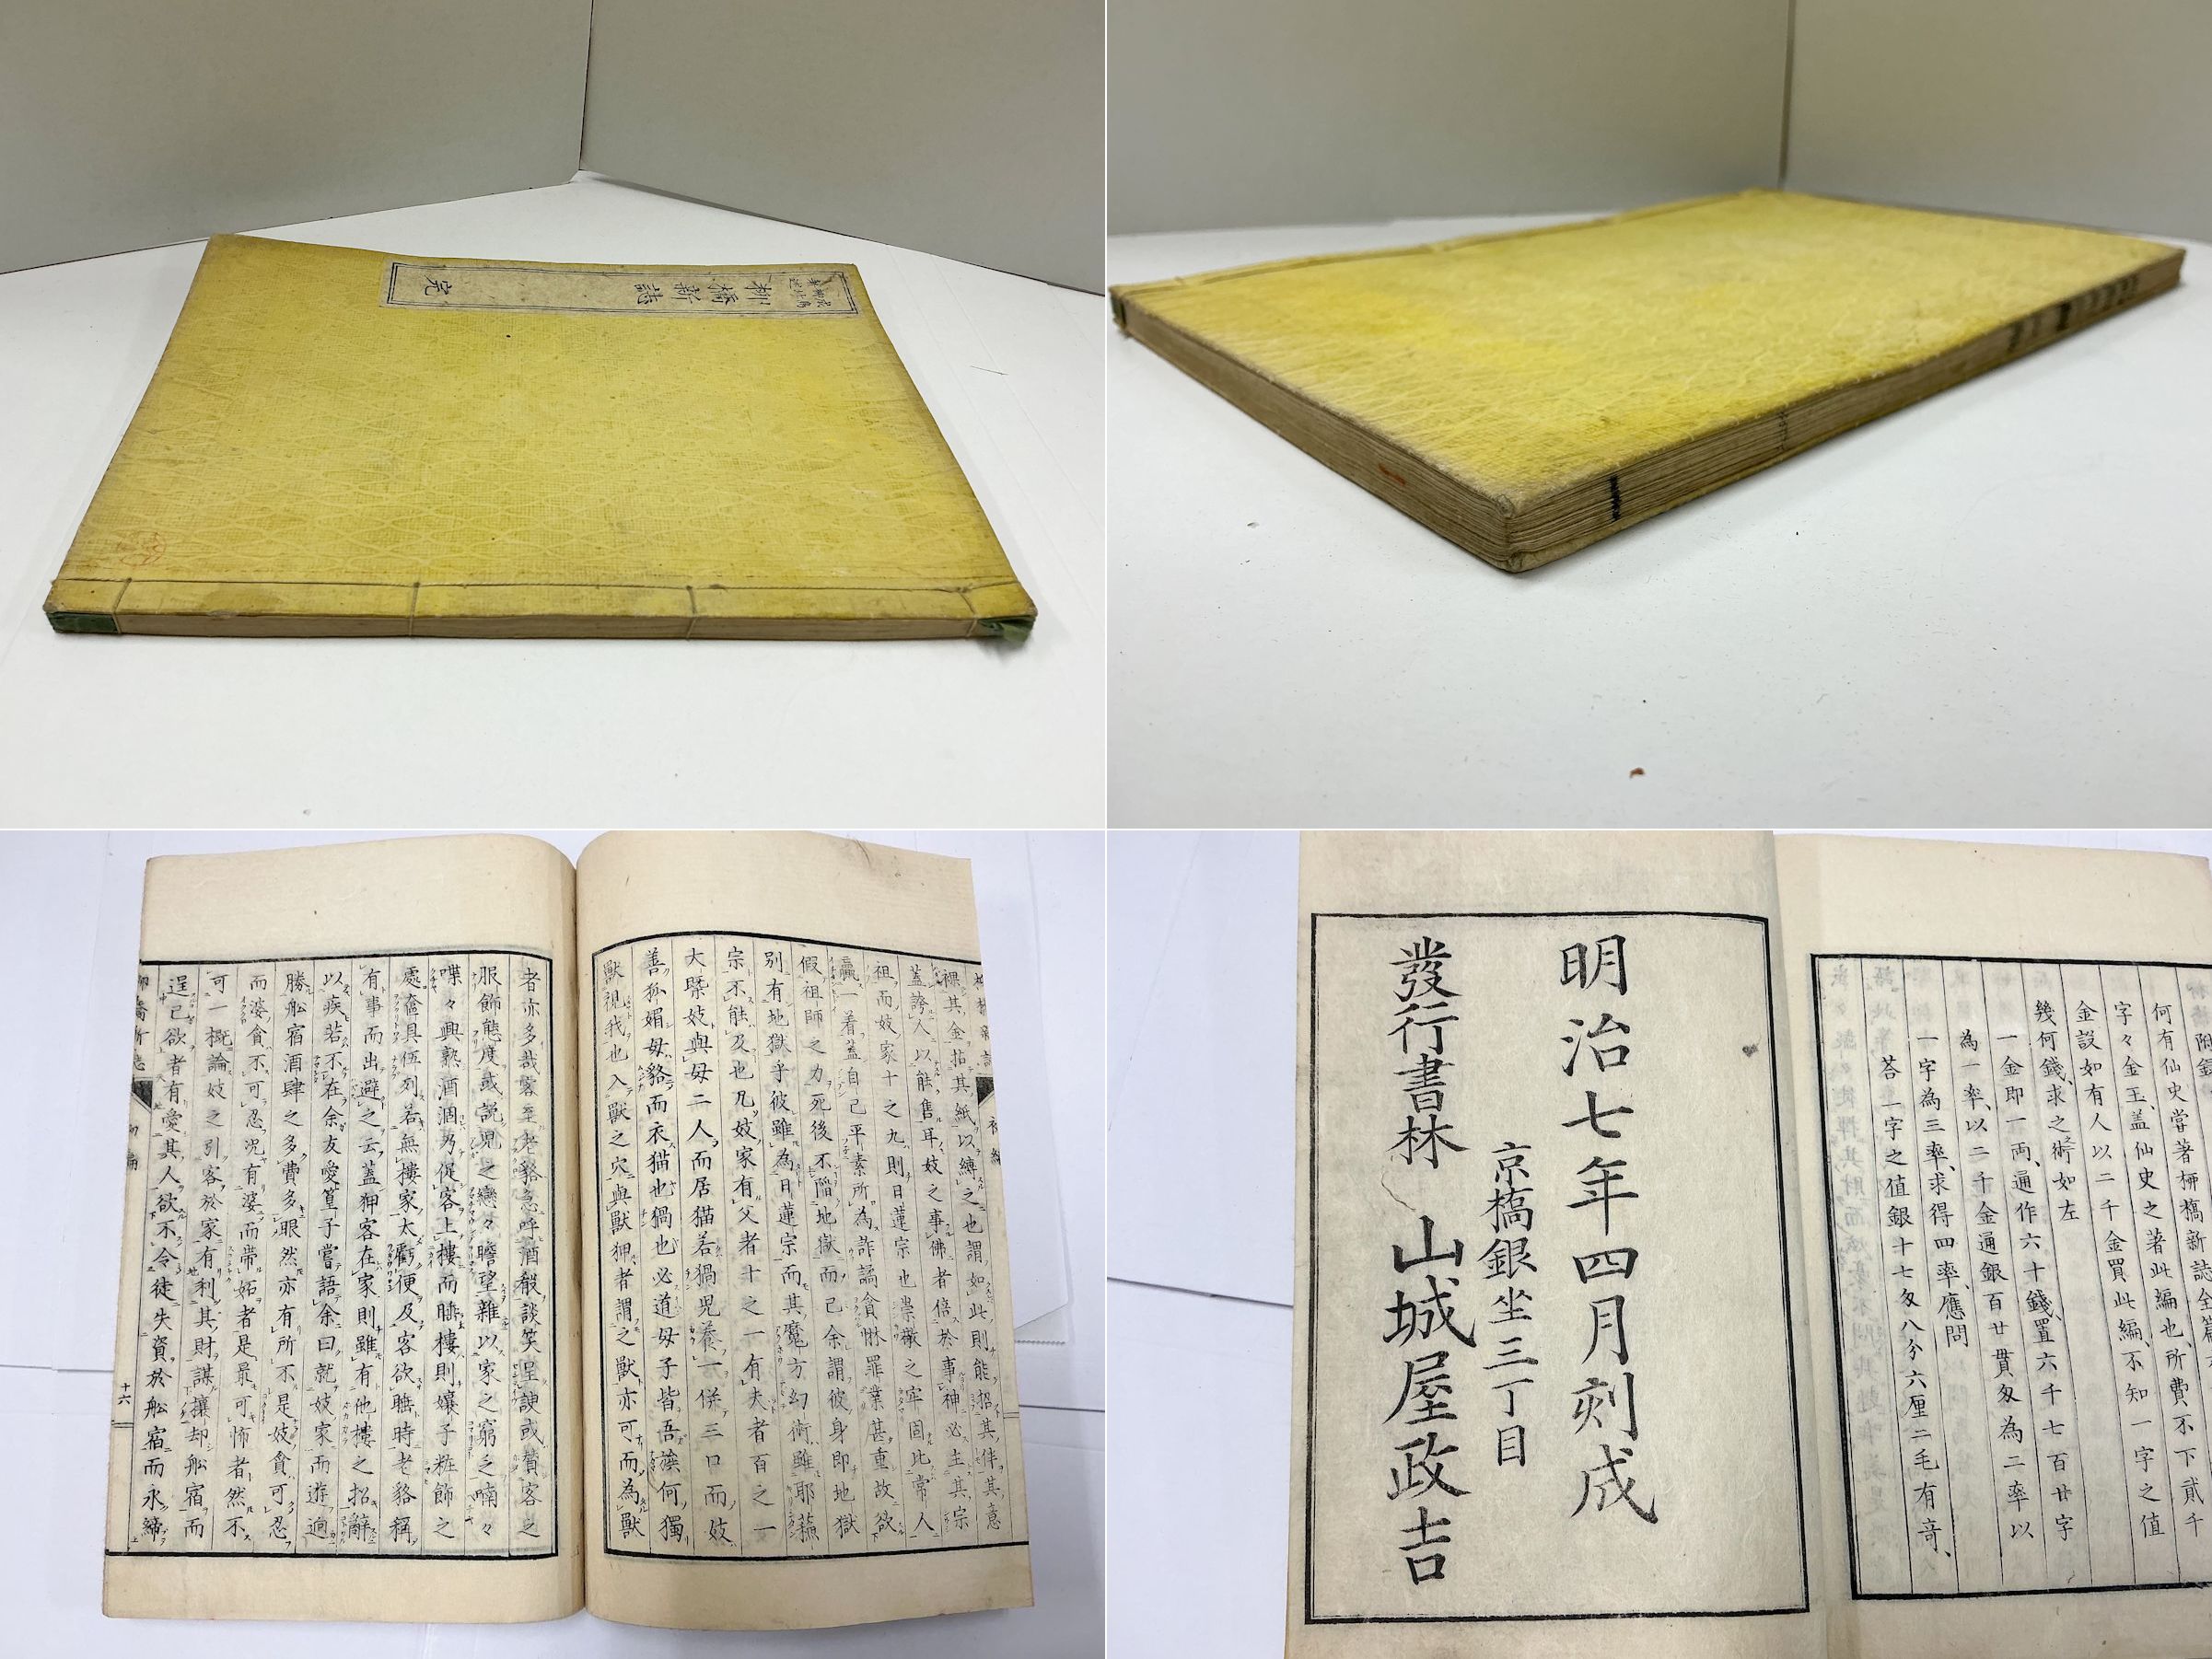 柳橋新誌 完
柳橋新誌 初編
裸其金拈其紙以縛之也謂如此則能招其伴其意
蓋誇人以能售耳妓之事佛者倍於事神必主其宗
祖而妓家十之九則日蓮宗也崇敬之牢固此常人
贏一着蓋自己平素所為詐譎貪惏罪業甚重故欲
假祖師之力死後不陷地獄而已余謂彼身即地獄
別有地獄乎彼雖為日蓮宗而其魔方幻術雖耶蘇
宗不能及也凡妓家有父者十之一有夫者百之一
大槩妓與母二人而居猫若猧児養一併三口而妓
善狐媚母貉而衣猫也猧也必道母子皆吾何獨
獸視我也入獸之穴與獸狎者謂之獸亦可而為獸
者亦多哉客至老貉急呼酒殽談笑呈諛或賛客之
服飾態度或説児之戀々瞻望雜以家之窮乏喃々
喋々興熟酒涸乃促客上樓而睡樓則孃子粧飾之
處奩具伍列若無樓家太虧便及客欲睡時老貉稱
有事而出避之云蓋狎客在家則雖有他樓之招辭
以疾若不在余友愛篁子嘗語余曰就妓家而遊逈
勝舩宿酒肆之多費多眼然亦有所不是妓貪可忍
而婆貪不可忍況有婆而帶妬者是最可怖者然不
可一概論妓之引客於家有利其財謀攘却舩宿而
逞己欲者有愛其人欲不令徒失資於舩宿而永締
柳橋新誌 初編 十六
附錄
何有仙史嘗著柳橋新誌全篇
字々金玉蓋仙史之著此編也所費不下貳千
金設如有人以二千金買此編不知一字之值
幾何錢求之術如左
一金即一両通作六十錢置六千七百廿字
為一率以二千金通銀百廿貫匁為二率以
一字為三率求得四率應問
荅一字之值銀十七匁八分六厘二毛有竒
明治七年四月刻成
京橋銀坐三丁目
發行書林 山城屋政吉